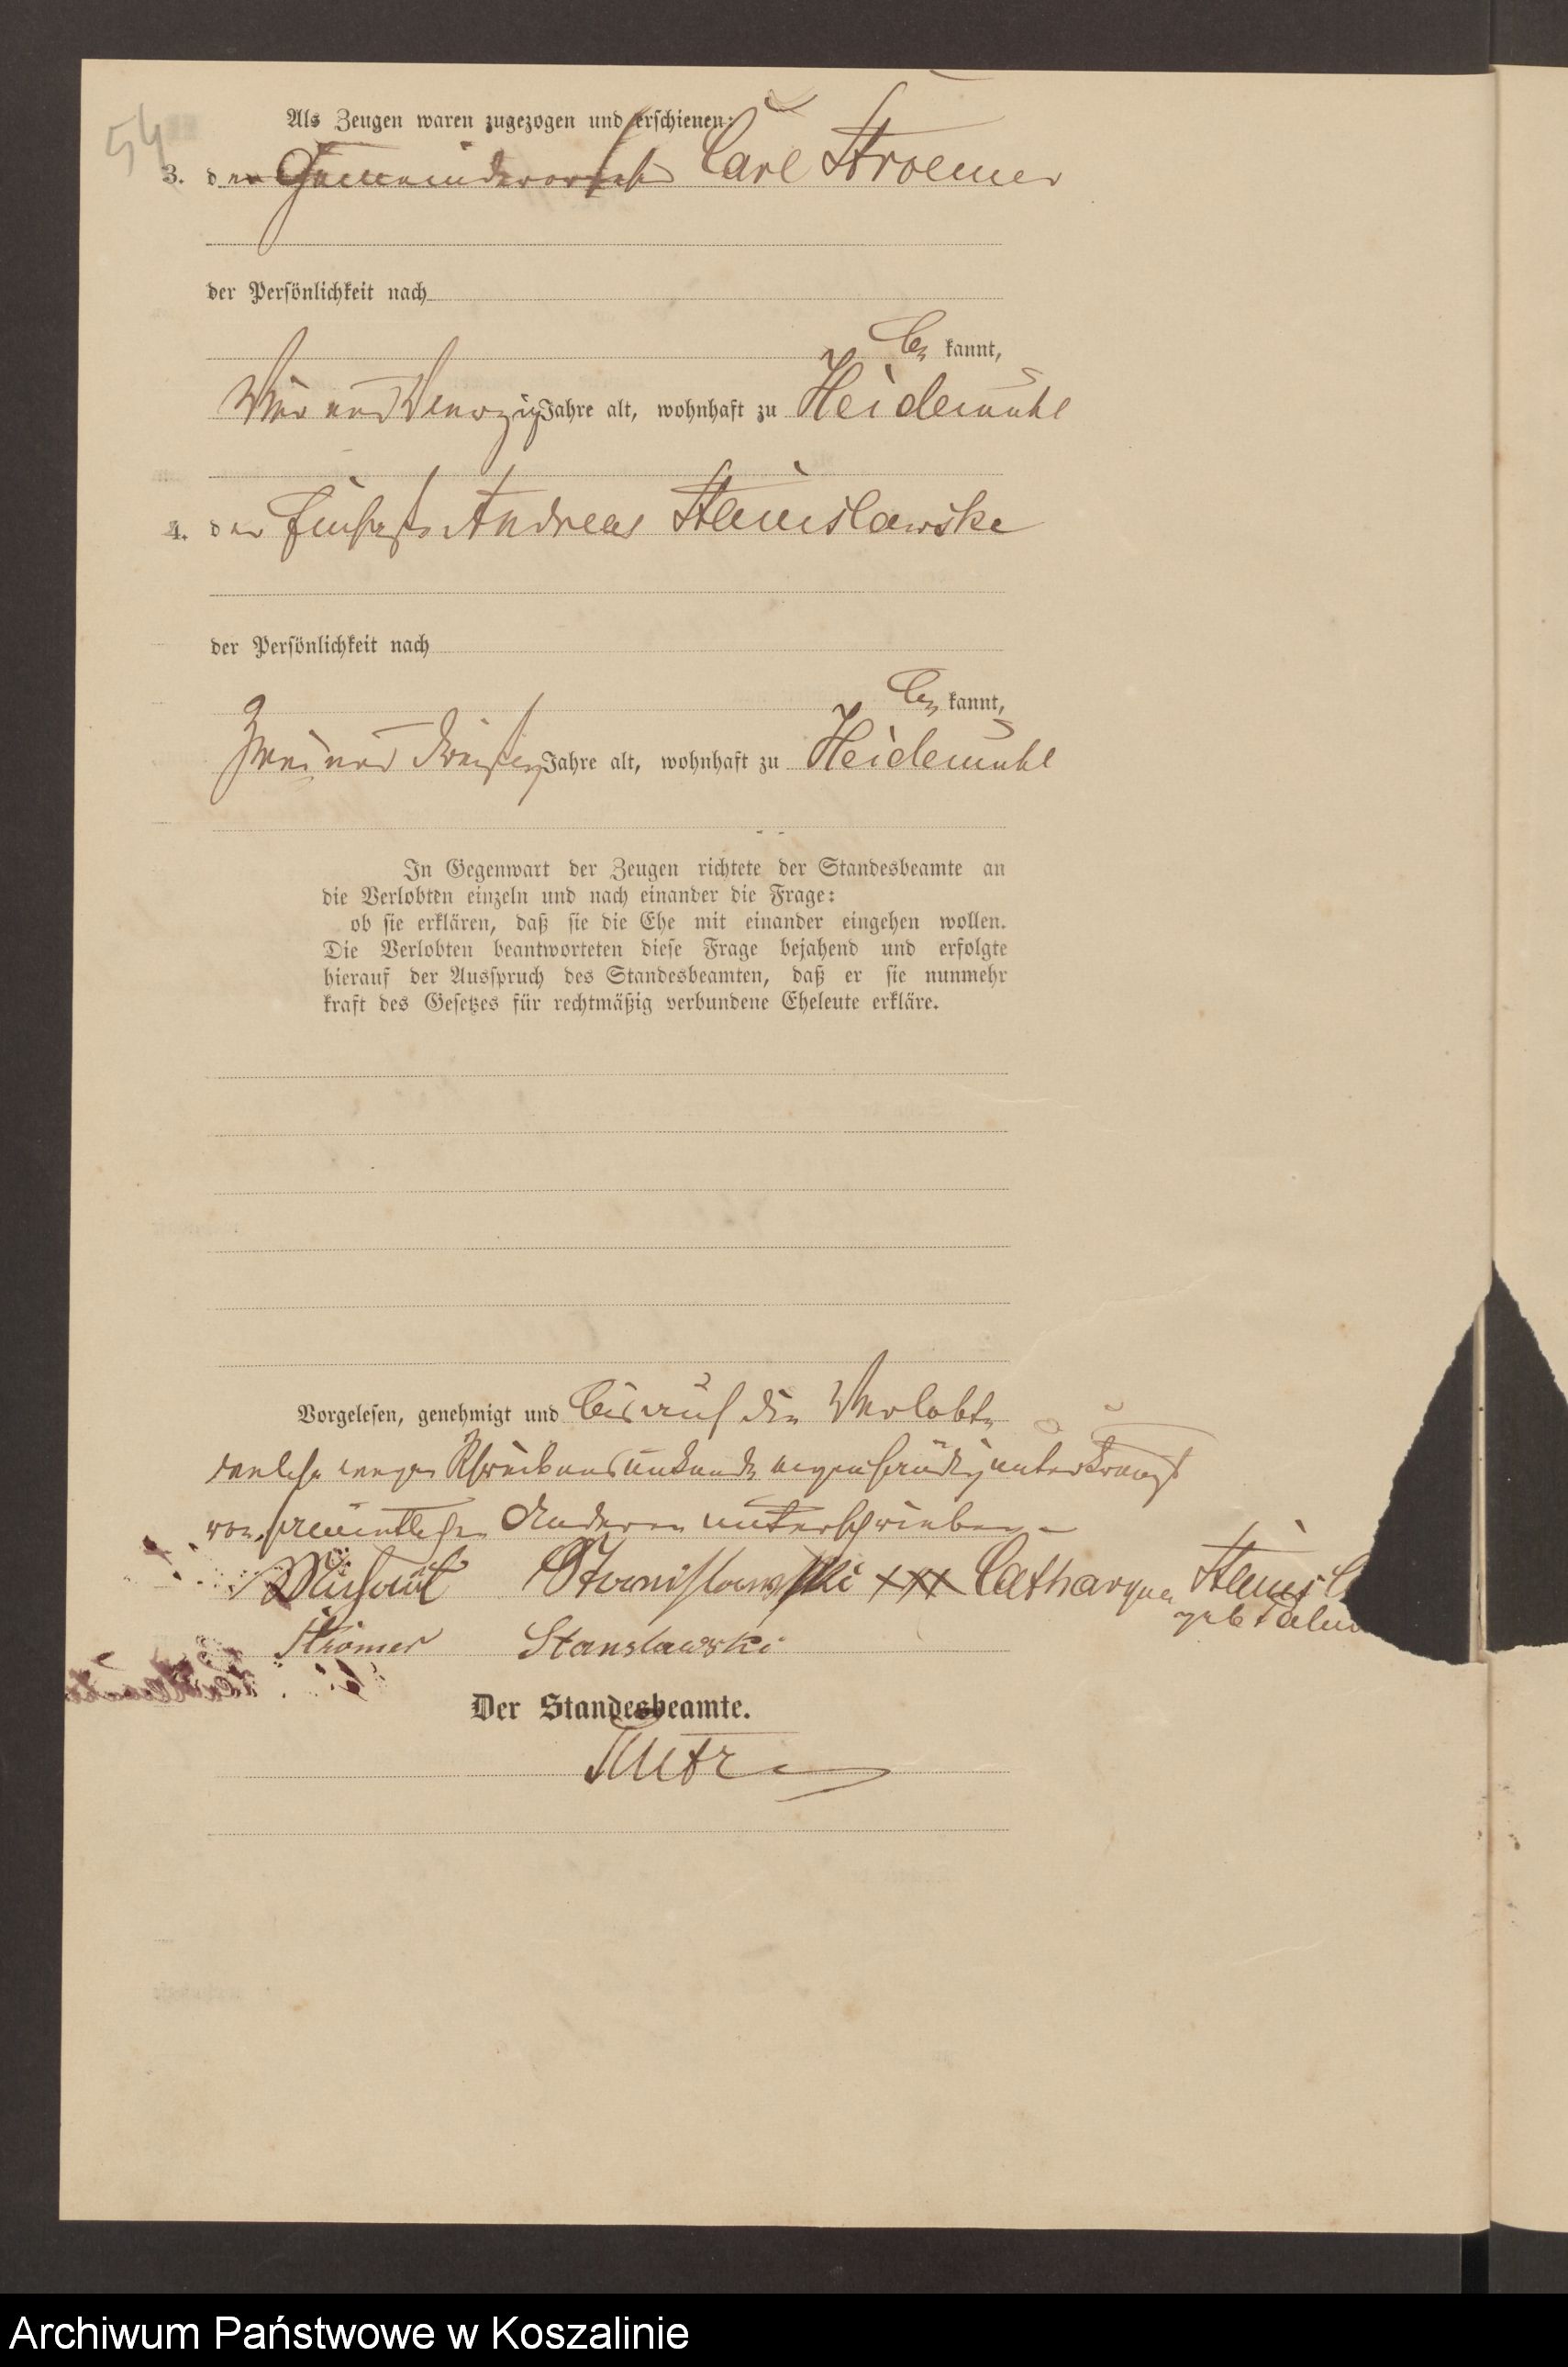 54
Als Zeugen waren zugezogen und erschienen:
3. der Gemeindevorsteher Carl Stroemer
der Persönlichkeit nach
be kannt,
Vier und Vierzig Jahre alt, wohnhaft zu Heidemühl
4. der Andreas Stanislawske
der Persönlichkeit nach
be kannt,
Zwei und dreißig Jahre alt, wohnhaft zu Heidemühl
In Gegenwart der Zeugen richtete der Standesbeamte an
die Verlobten einzeln und nach einander die Frage:
ob sie erklären, daß sie die Ehe mit einander eingehen wollen.
Die Verlobten beantworteten diese Frage bejahend und erfolgte
hierauf der Ausspruch des Standesbeamten, daß er sie nunmehr
kraft des Gesetzes für rechtmäßig verbundene Eheleute erkläre.
Vorgelesen, genehmigt und bis auf die Verlobte
welche wegen Schreibensunkunde unterkreuzt
von sämmtlichen Anderen unterschrieben
Stanislawski xxx Catharyna Stanisl
geb
Strömer Stanslawski
Der Standesbeamte.
Archiwum Państwowe w Koszalinie